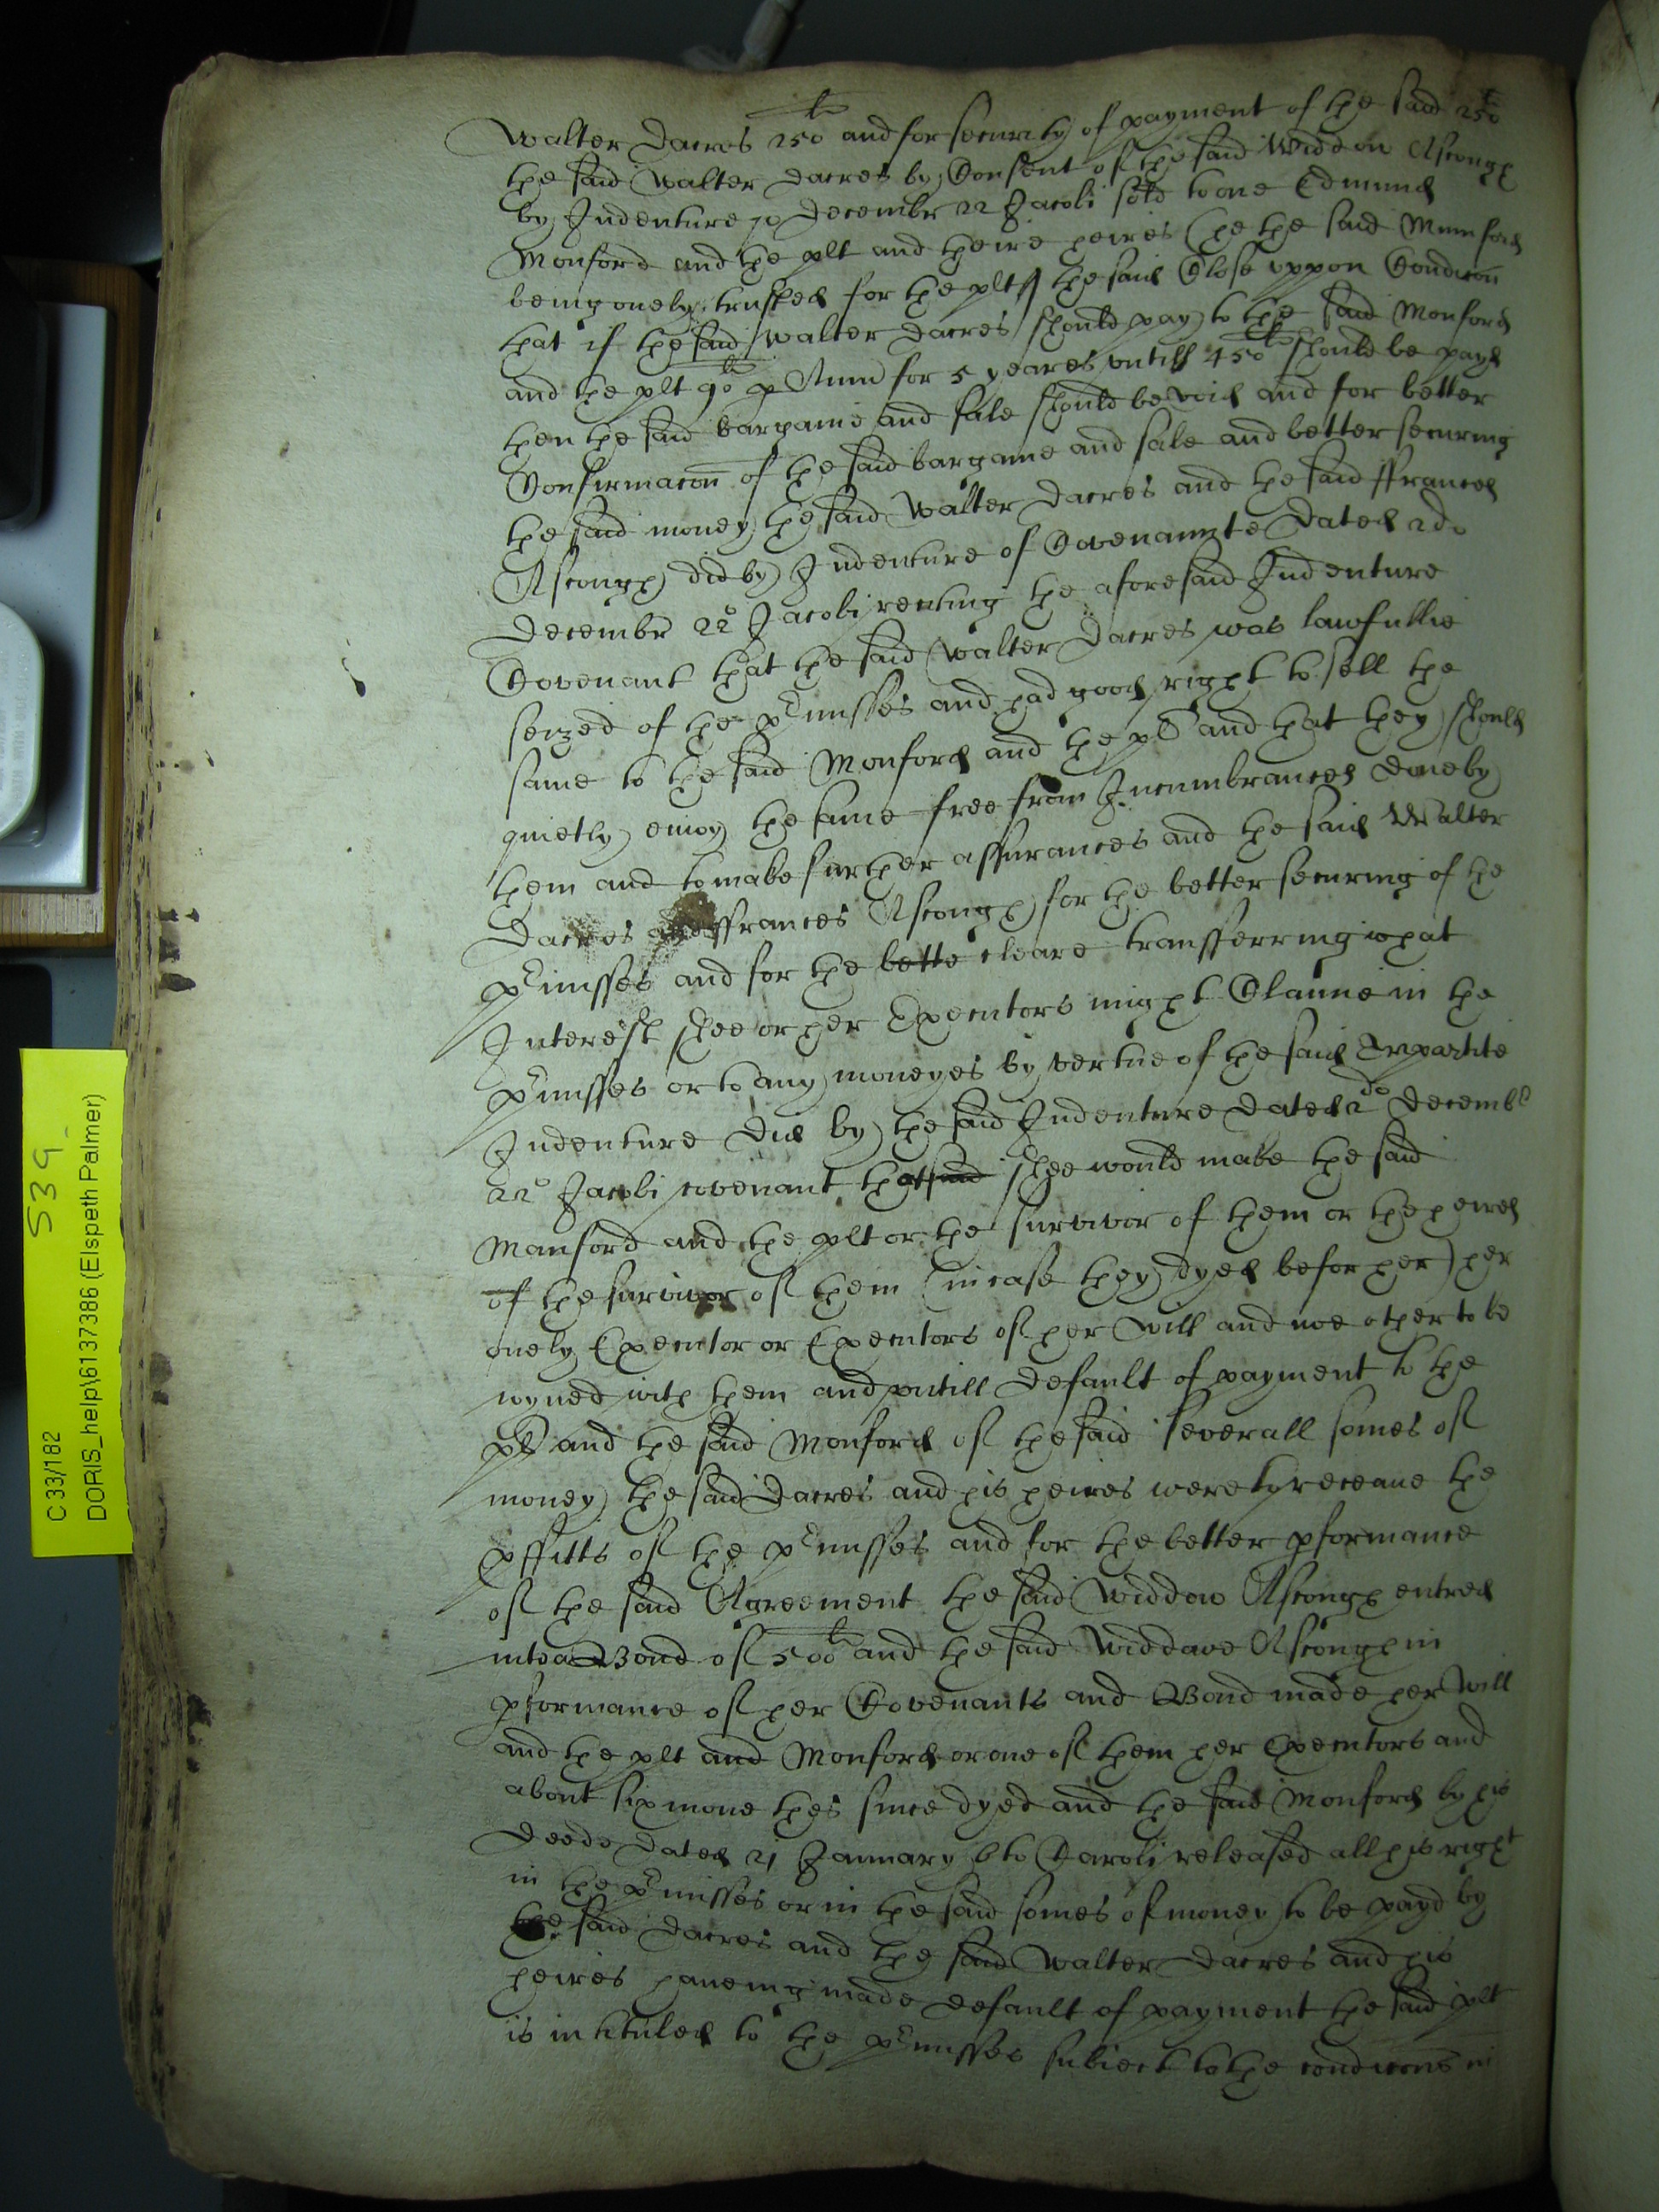 Walter Dacres 250li and for security of payment of the said 250li
the said Walter Dacres by Consent of the said Widdow Ascough
by Indenture 10 December 22 Jacobi sold to one Edmund
Monford and the plt and theire heires (he the said Munford
being onely trusted for the plt) the said Close vppon Condicon
that if the said Walter Dacres should pay to the said Monford
and the plt 90li p Annu for 5 yeares vntill 450li should be payd
then the said bargaine and sale should be void and for better
Confirmacon of the said bargaine and sale and better securing
the said money the said Walter Dacres and the said ffrances
Ascough did by Indenture of Covenannte dated 2do
Decembr 22o Jacobi reciting the aforesaid Indenture
Covenant that the said Walter Dacres was lawfullie
seized of the pmisses and had good right to sell the
same to the said Monford and the plt and that they should
quietly enioy the same free from Incumbrances done by
them and to make further assurances and the said Walter
Dacres and ffrances Ascough for the better securing of the
pmisses and for the bette cleare transferring what
Interest shee or her Executors might Claime in the
pmisses or to any moneyes by vertue of the said Tripartite
Indenture did by the said Indenture dated 2do Decembr
22o Jacobi covenant that said shee would make the said
Manford and the plt or the survivor of them or the heires
of the survivor of them (in case they dyed befor her) her
onely Executor or Executors of her Will and noe other to be
ioyned with them and vntill default of payment to the
plt and the said Monford of the said severall somes of
money the said Dacres and his heires were to receaue the
pffitts of the pmisses and for the better pformance
of the said Agreement the said Widdow Ascough entred
into a Bond of 500li and the said Widdowe Ascough in
pformance of her Covenants and Bond made her Will
and the plt and Monford or one of them her Executors and
about six monethes since dyed and the said Monford by his
deede dated 21 January 6to Caroli released all his right
in the pmisses or in the said somes of money to be payd by
the said Dacres and the said Walter Dacres and his
heires haueing made default of payment the said plt
is intituled to the pmisses subiect to the condicons in
C 33/182 539
DORIS_help\6137386 (Elspeth Palmer)